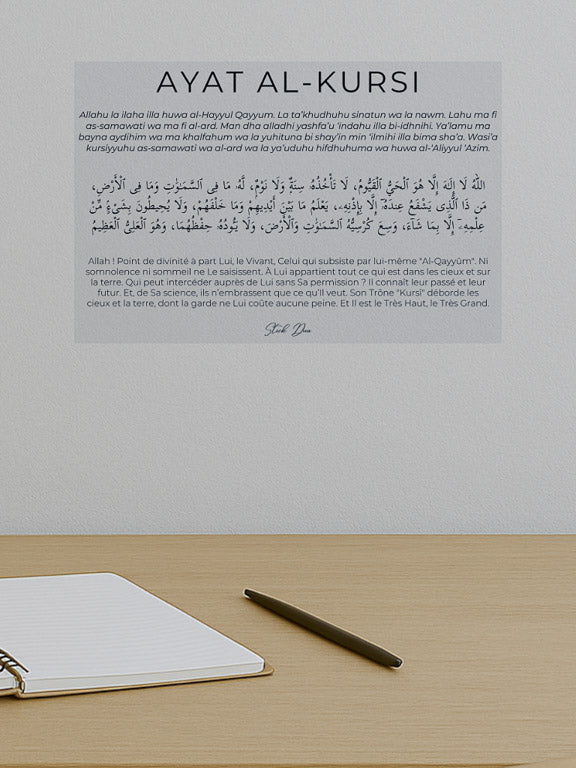 AYAT AL-KURSI
Allahu la ilaha illa huwa al-Hayyul Qayyum. La ta'khudhuhu sinatun wa la nawm. Lahu ma fi
as-samawati wa ma fi al-ard. Man dha alladhi yashfa'u 'indahu illa bi-idhnihi. Ya'lamu ma
bayna aydihim wa ma khalfahum wa la yuhituna bi shay'in min 'ilmihi illa bima sha'a. Wasi'a
kursiyyuhu as-samawati wa al-ard wa la ya'uduhu hifdhuhuma wa huwa al-'Aliyyul 'Azim.
اللَّهُ لَا إِلَٰهَ إِلَّا هُوَ ٱلْحَىُّ ٱلْقَيُّومُ، لَا تَأْخُذُهُۥ سِنَةٌ وَلَا نَوْمٌ، لَّهُۥ مَا فِى ٱلسَّمَٰوَٰتِ وَمَا فِى ٱلْأَرْضِ،
مَن ذَا ٱلَّذِى يَشْفَعُ عِندَهُۥٓ إِلَّا بِإِذْنِهِۦ، يَعْلَمُ مَا بَيْنَ أَيْدِيهِمْ وَمَا خَلْفَهُمْ، وَلَا يُحِيطُونَ بِشَىْءٍ مِّنْ
عِلْمِهِۦٓ إِلَّا بِمَا شَآءَ، وَسِعَ كُرْسِيُّهُ ٱلسَّمَٰوَٰتِ وَٱلْأَرْضَ، وَلَا يَـُٔودُهُۥ حِفْظُهُمَا، وَهُوَ ٱلْعَلِىُّ ٱلْعَظِيمُ
Allah ! Point de divinité à part Lui, le Vivant, Celui qui subsiste par lui-même "Al-Qayyûm". Ni
somnolence ni sommeil ne Le saisissent. À Lui appartient tout ce qui est dans les cieux et sur
la terre. Qui peut intercéder auprès de Lui sans Sa permission ? Il connaît leur passé et leur
futur. Et, de Sa science, ils n'embrassent que ce qu'Il veut. Son Trône "Kursî" déborde les
cieux et la terre, dont la garde ne Lui coûte aucune peine. Et Il est le Très Haut, le Très Grand.
Stick Dua